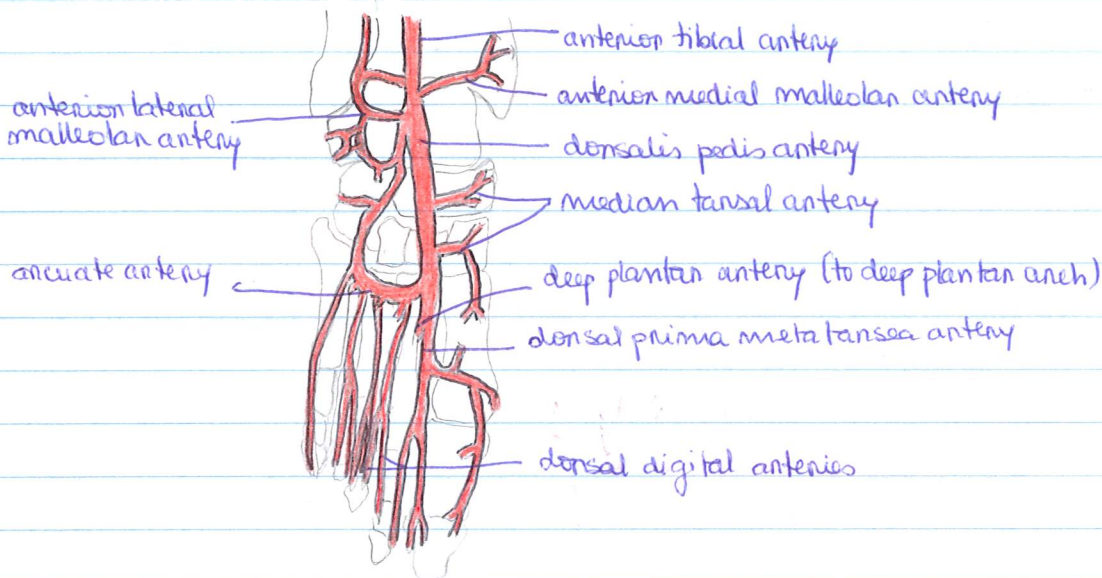 anterior tibial artery
anterior medial malleolar artery
anterior lateral
malleolar artery
dorsalis pedis artery
median tarsal artery
arcuate artery
deep plantar artery (to deep plantar arch)
dorsal prima metatarsea artery
dorsal digital arteries